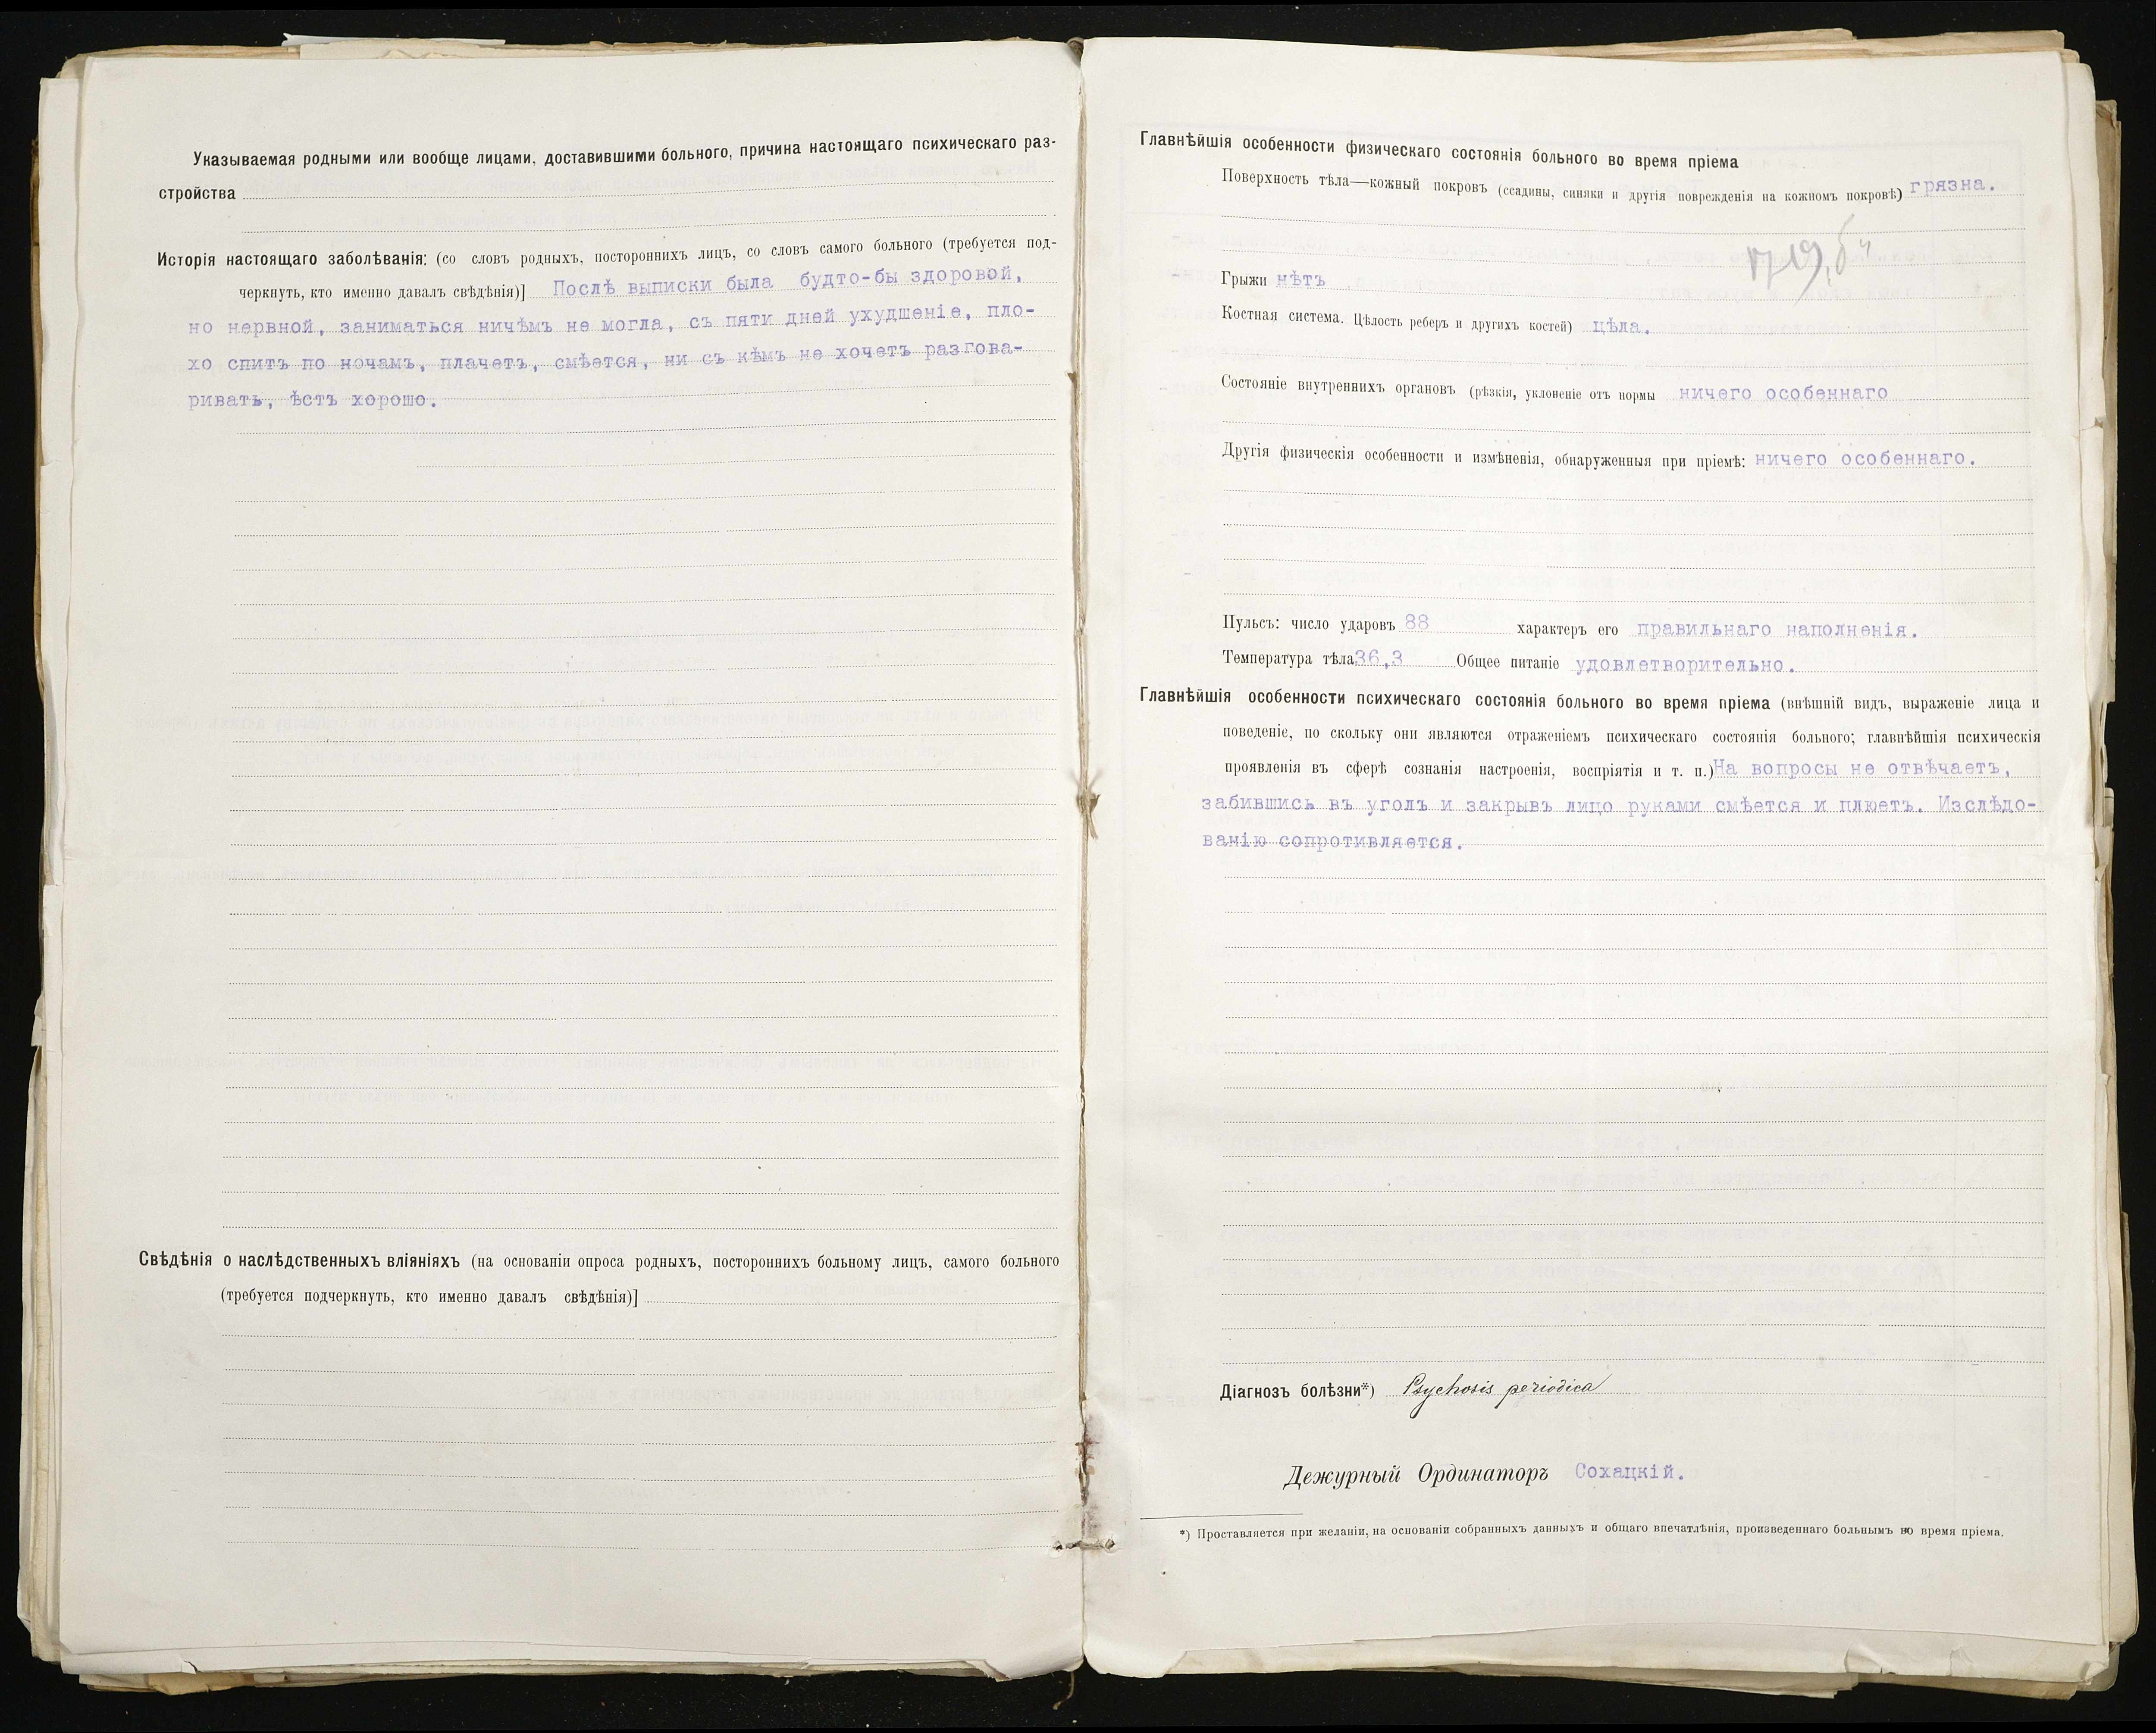 Указываемая родными или вообще лицами, доставившими больного, причина настоящаго психическаго раз-
стройства
Исторія настоящаго заболѣванія: (со словъ родныхъ, постороннихъ лицъ, со словъ самого больного (требуется под-
черкнуть, кто именно давалъ свѣдѣнія)] Послѣ выписки была будто-бы здоровой,
но нервной, заниматься ничѣмъ не могла, съ пяти дней ухудшеніе, пло-
хо спитъ по ночамъ, плачетъ, смѣется, ни съ кѣмъ не хочетъ разгова-
ривать, ѣстъ хорошо.
Свѣдѣнія о наслѣдственныхъ вліяніяхъ (на основаніи опроса родныхъ, постороннихъ больному лицъ, самого больного
(требуется подчеркнуть, кто именно давалъ свѣдѣнія)]
Главнѣйшія особенности физическаго состоянія больного во время пріема
Поверхность тѣла—кожный покровъ (ссадины, синяки и другія поврежденія на кожномъ покровѣ) грязна.
Грыжи нѣтъ
Костная система. Цѣлость реберъ и другихъ костей) цѣла.
Состояніе внутреннихъ органовъ (рѣзкія, уклоненіе отъ нормы ничего особеннаго
Другія физическія особенности и измѣненія, обнаруженныя при пріемѣ: ничего особеннаго.
Пульсъ: число ударовъ 88 характеръ его правильнаго наполненія.
Температура тѣла 36,3 Общее питаніе удовлетворительно.
Главнѣйшія особенности психическаго состоянія больного во время пріема (внѣшній видъ, выраженіе лица и
поведеніе, по скольку они являются отраженіемъ психическаго состоянія больного; главнѣйшія психическія
проявленія въ сферѣ сознанія настроенія, воспріятія и т. п.) На вопросы не отвѣчаетъ,
забившись въ уголъ и закрывъ лицо руками смѣется и плюетъ. Изслѣдо-
ванію сопротивляется.
Діагнозъ болѣзни*) Psychosis periodica
Дежурный Ординаторъ Сохацкій.
*) Проставляется при желаніи, на основаніи собранныхъ данныхъ и общаго впечатлѣнія, произведеннаго больнымъ во время пріема.